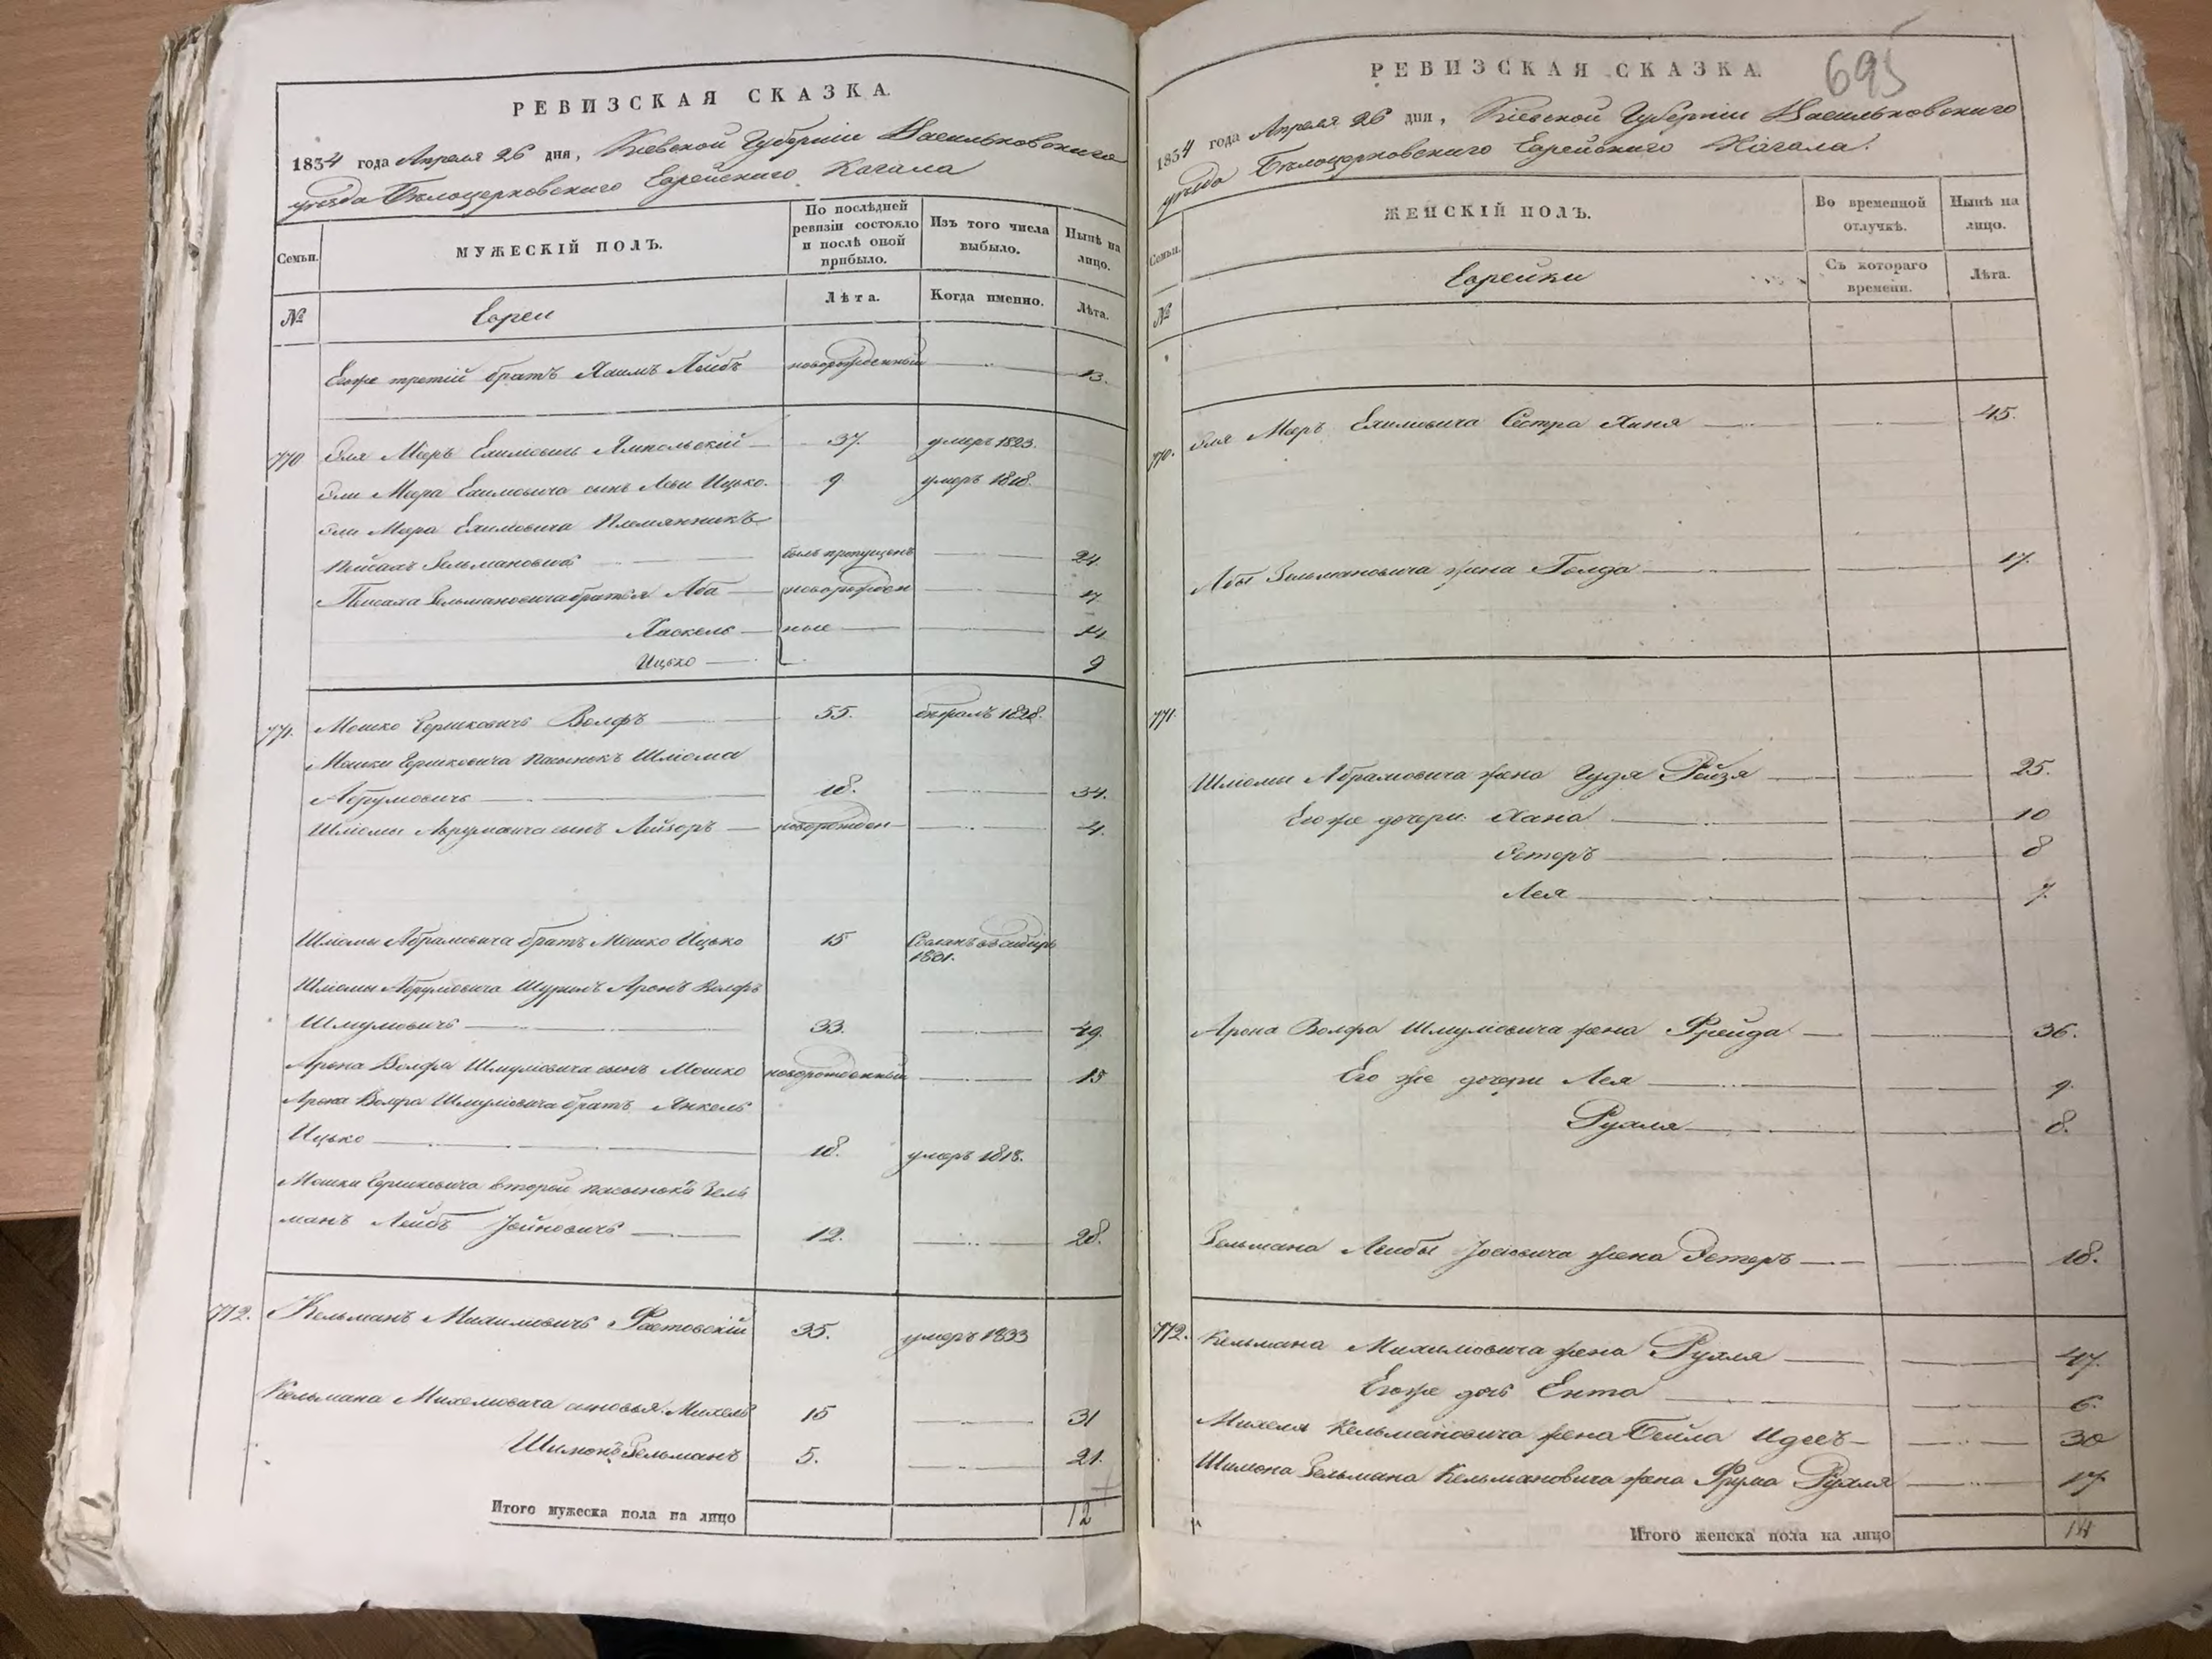 РЕВИЗСКАЯ СКАЗКА.
1834 года Апреля 26 дня, Кіевской Губерніи Васильковскаго
уезда Бѣлоцерковскаго Еврейскаго Кагала
Семьи.
МУЖЕСКІЙ ПОЛЪ.
По послѣдней ревизіи состояло и послѣ оной прибыло.
Изъ того числа выбыло.
Нынѣ на лицо.
№
Евреи
Лѣта.
Когда именно.
Лѣта.
Егоже третій братъ Хаимъ Лейбъ новорожденный 13.
770 Эля Меръ Ехимовичъ Ямпольскій 37. умеръ 1823.
Эли Мера Ехимовича сынъ Ицько. 9. умеръ 1818.
Эли Мера Ехимовича Племянникъ
Пейсахъ Зельмановичъ былъ пропущенъ 24
Пейсаха Зельмановича братья Аба новорожден 17
Хаскель ные 14
Ицько 9
771. Мошко Гершковичъ Волфъ 55. бѣжалъ 1828.
Мошки Гершковича пасынокъ Шліома
Абрумовичъ 18. 34.
Шліомы Аврумовича сынъ Лейзоръ новорожден 4.
Шліомы Абрамовича братъ Мошко Ицько 15 Сосланъ въ сибирь
1831.
Шліомы Абрумовича Шуринъ Аронъ Волфъ
Шмуловичъ 33. 49.
Арона Волфа Шмуліовича сынъ Мошко новорожденный 15
Арона Волфа Шмуліовича братъ Янкель
Ицько 18. умеръ 1818.
Мошки Гершковича второй пасынокъ Зель
манъ Лейбъ 12. 28.
772. Кельманъ Михимовичъ Фастовскій 35. умеръ 1833
Кельмана Михелмовича сыновья. Михель 15 31
Шимонъ Зельманъ 5. 21.
Итого мужеска пола на лицо 12
РЕВИЗСКАЯ СКАЗКА.
695
1834 года Апреля 26 дня, Кіевской Губерніи Васильковскаго
уезда Бѣлоцерковскаго Еврейскаго Кагала.
Семьи.
ЖЕНСКІЙ ПОЛЪ.
Во временной отлучкѣ.
Нынѣ на лицо.
№
Еврейки
Съ котораго времени.
Лѣта.
770. Эля Меръ Ехимовича Сестра Хиня 45.
Абы Зильмановича жена Голда 17.
771.
Шліомы Абрамовича жена Гудя Рейзя 25.
Егоже дочери: Хана 10
Эстеръ 8
Лея 7.
Арона Волфа Шмуліовича жена Фрейда 36.
Его же дочери Лея 9.
Рухля 8.
Зельмана Лейбы Іосіовича жена Эстеръ 18.
772. Кельмана Михимовича жена Рухля 47.
Егоже дочь Ента 6.
Михеля Кельмановича жена Бейла Идесъ 30
Шимона Зельмана Кельмановича жена Фрума Рухля 17
Итого женска пола на лицо 14